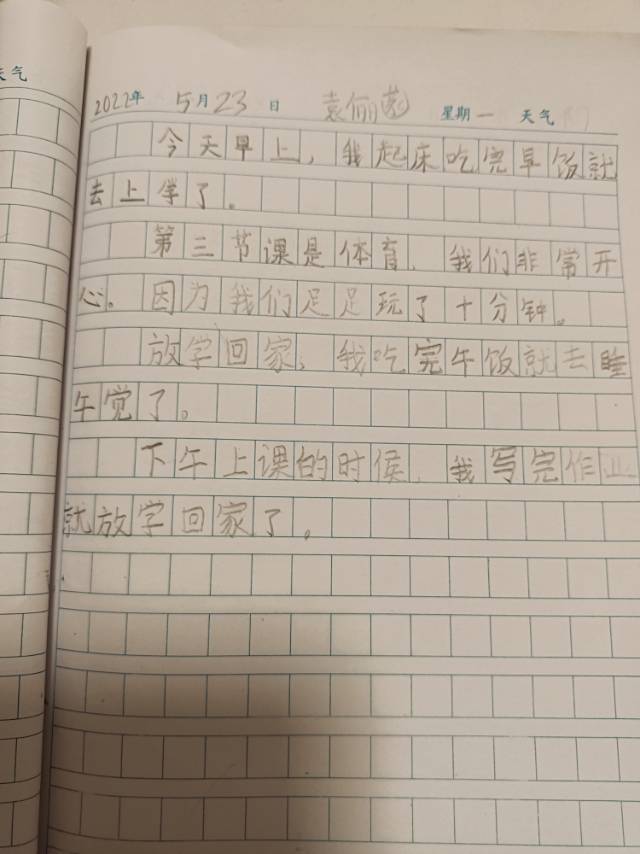 天气
2022年 5月23日 袁俪 星期一 天气
今天早上，我起床吃完早饭就
去上学了。
第三节课是体育，我们非常开
心。因为我们足足玩了十分钟。
放学回家，我吃完午饭就去睡
午觉了。
下午上课的时侯，我写完作业
就放学回家了。